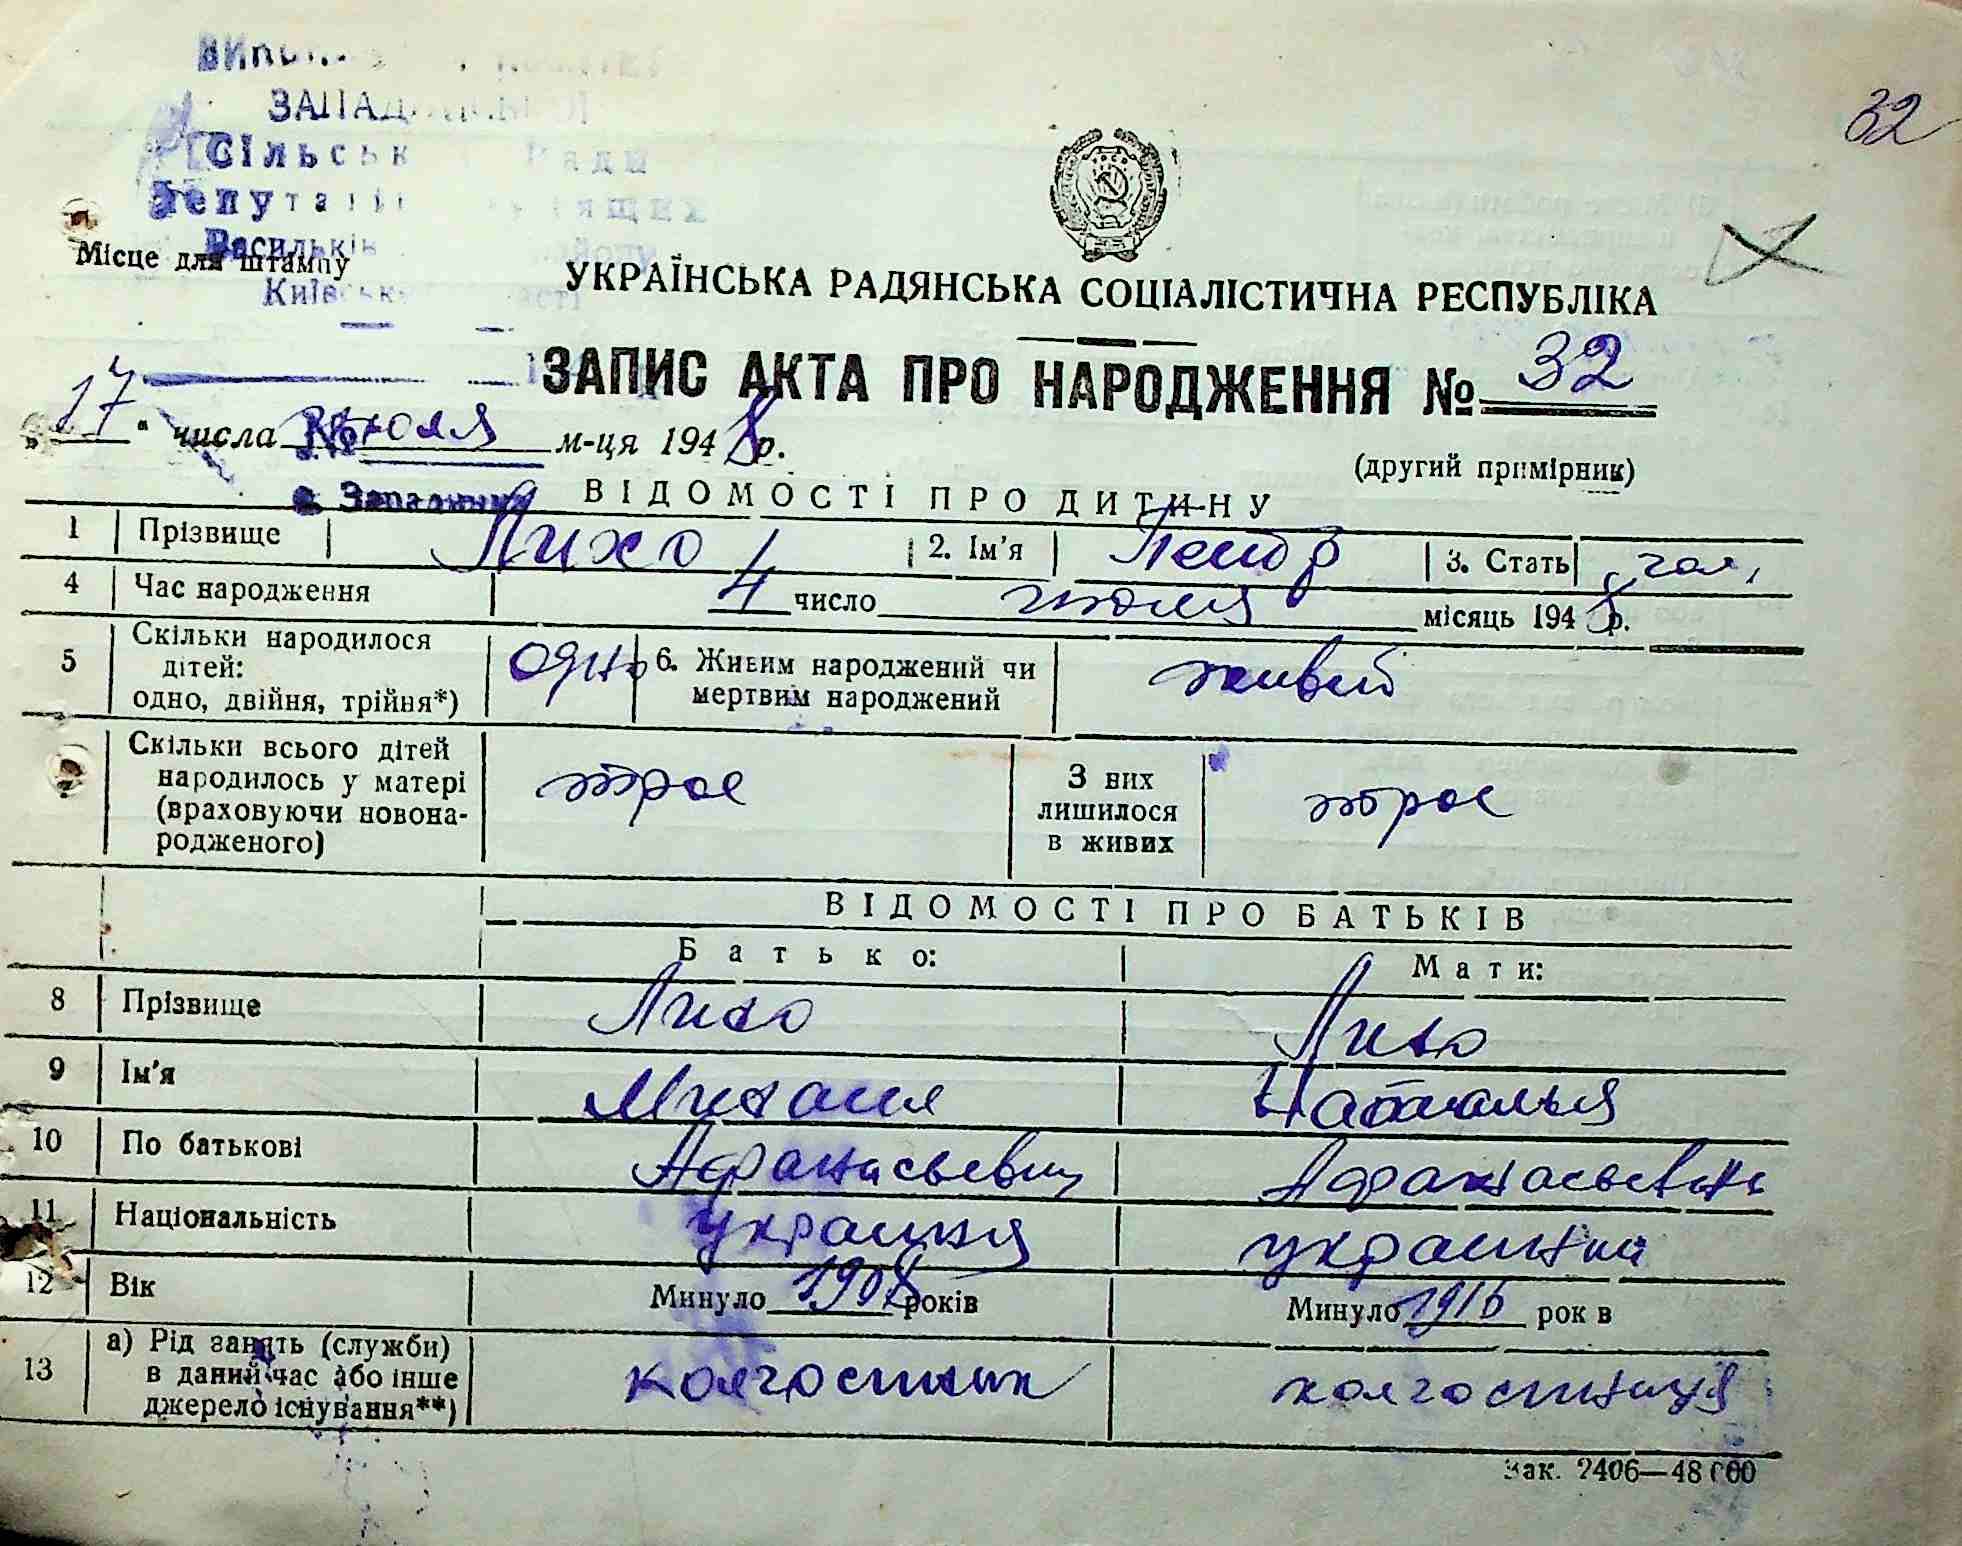 32
ЗАПАД
Сільськ Ради
Депута ящих
Васильків
Місце для штампу
Київськ сті
УКРАЇНСЬКА РАДЯНСЬКА СОЦІАЛІСТИЧНА РЕСПУБЛІКА
ЗАПИС АКТА ПРО НАРОДЖЕННЯ № 32
„17“ числа июля м-ця 1948 р.
(другий примірник)
с. Западинка
ВІДОМОСТІ ПРО ДИТИНУ
1 Прізвище Лихо 2. Ім'я Петр 3. Стать чол.
4 Час народження 4 число июля місяць 1948 р.
5 Скільки народилося дітей: одно, двійня, трійня*) одно 6. Живим народжений чи мертвим народжений живий
Скільки всього дітей народилось у матері (враховуючи новонародженого) трое З них лишилося в живих трое
ВІДОМОСТІ ПРО БАТЬКІВ
Батько: Мати:
8 Прізвище Лихо Лихо
9 Ім'я Михаил Наталья
10 По батькові Афанасьевич Афанасьевна
11 Національність
12 Вік Минуло 1908 років Минуло 1916 рок в
13 а) Рід занять (служби) в даний час або інше джерело існування**) колгоспник колгоспниця
Зак. 2406—48 000